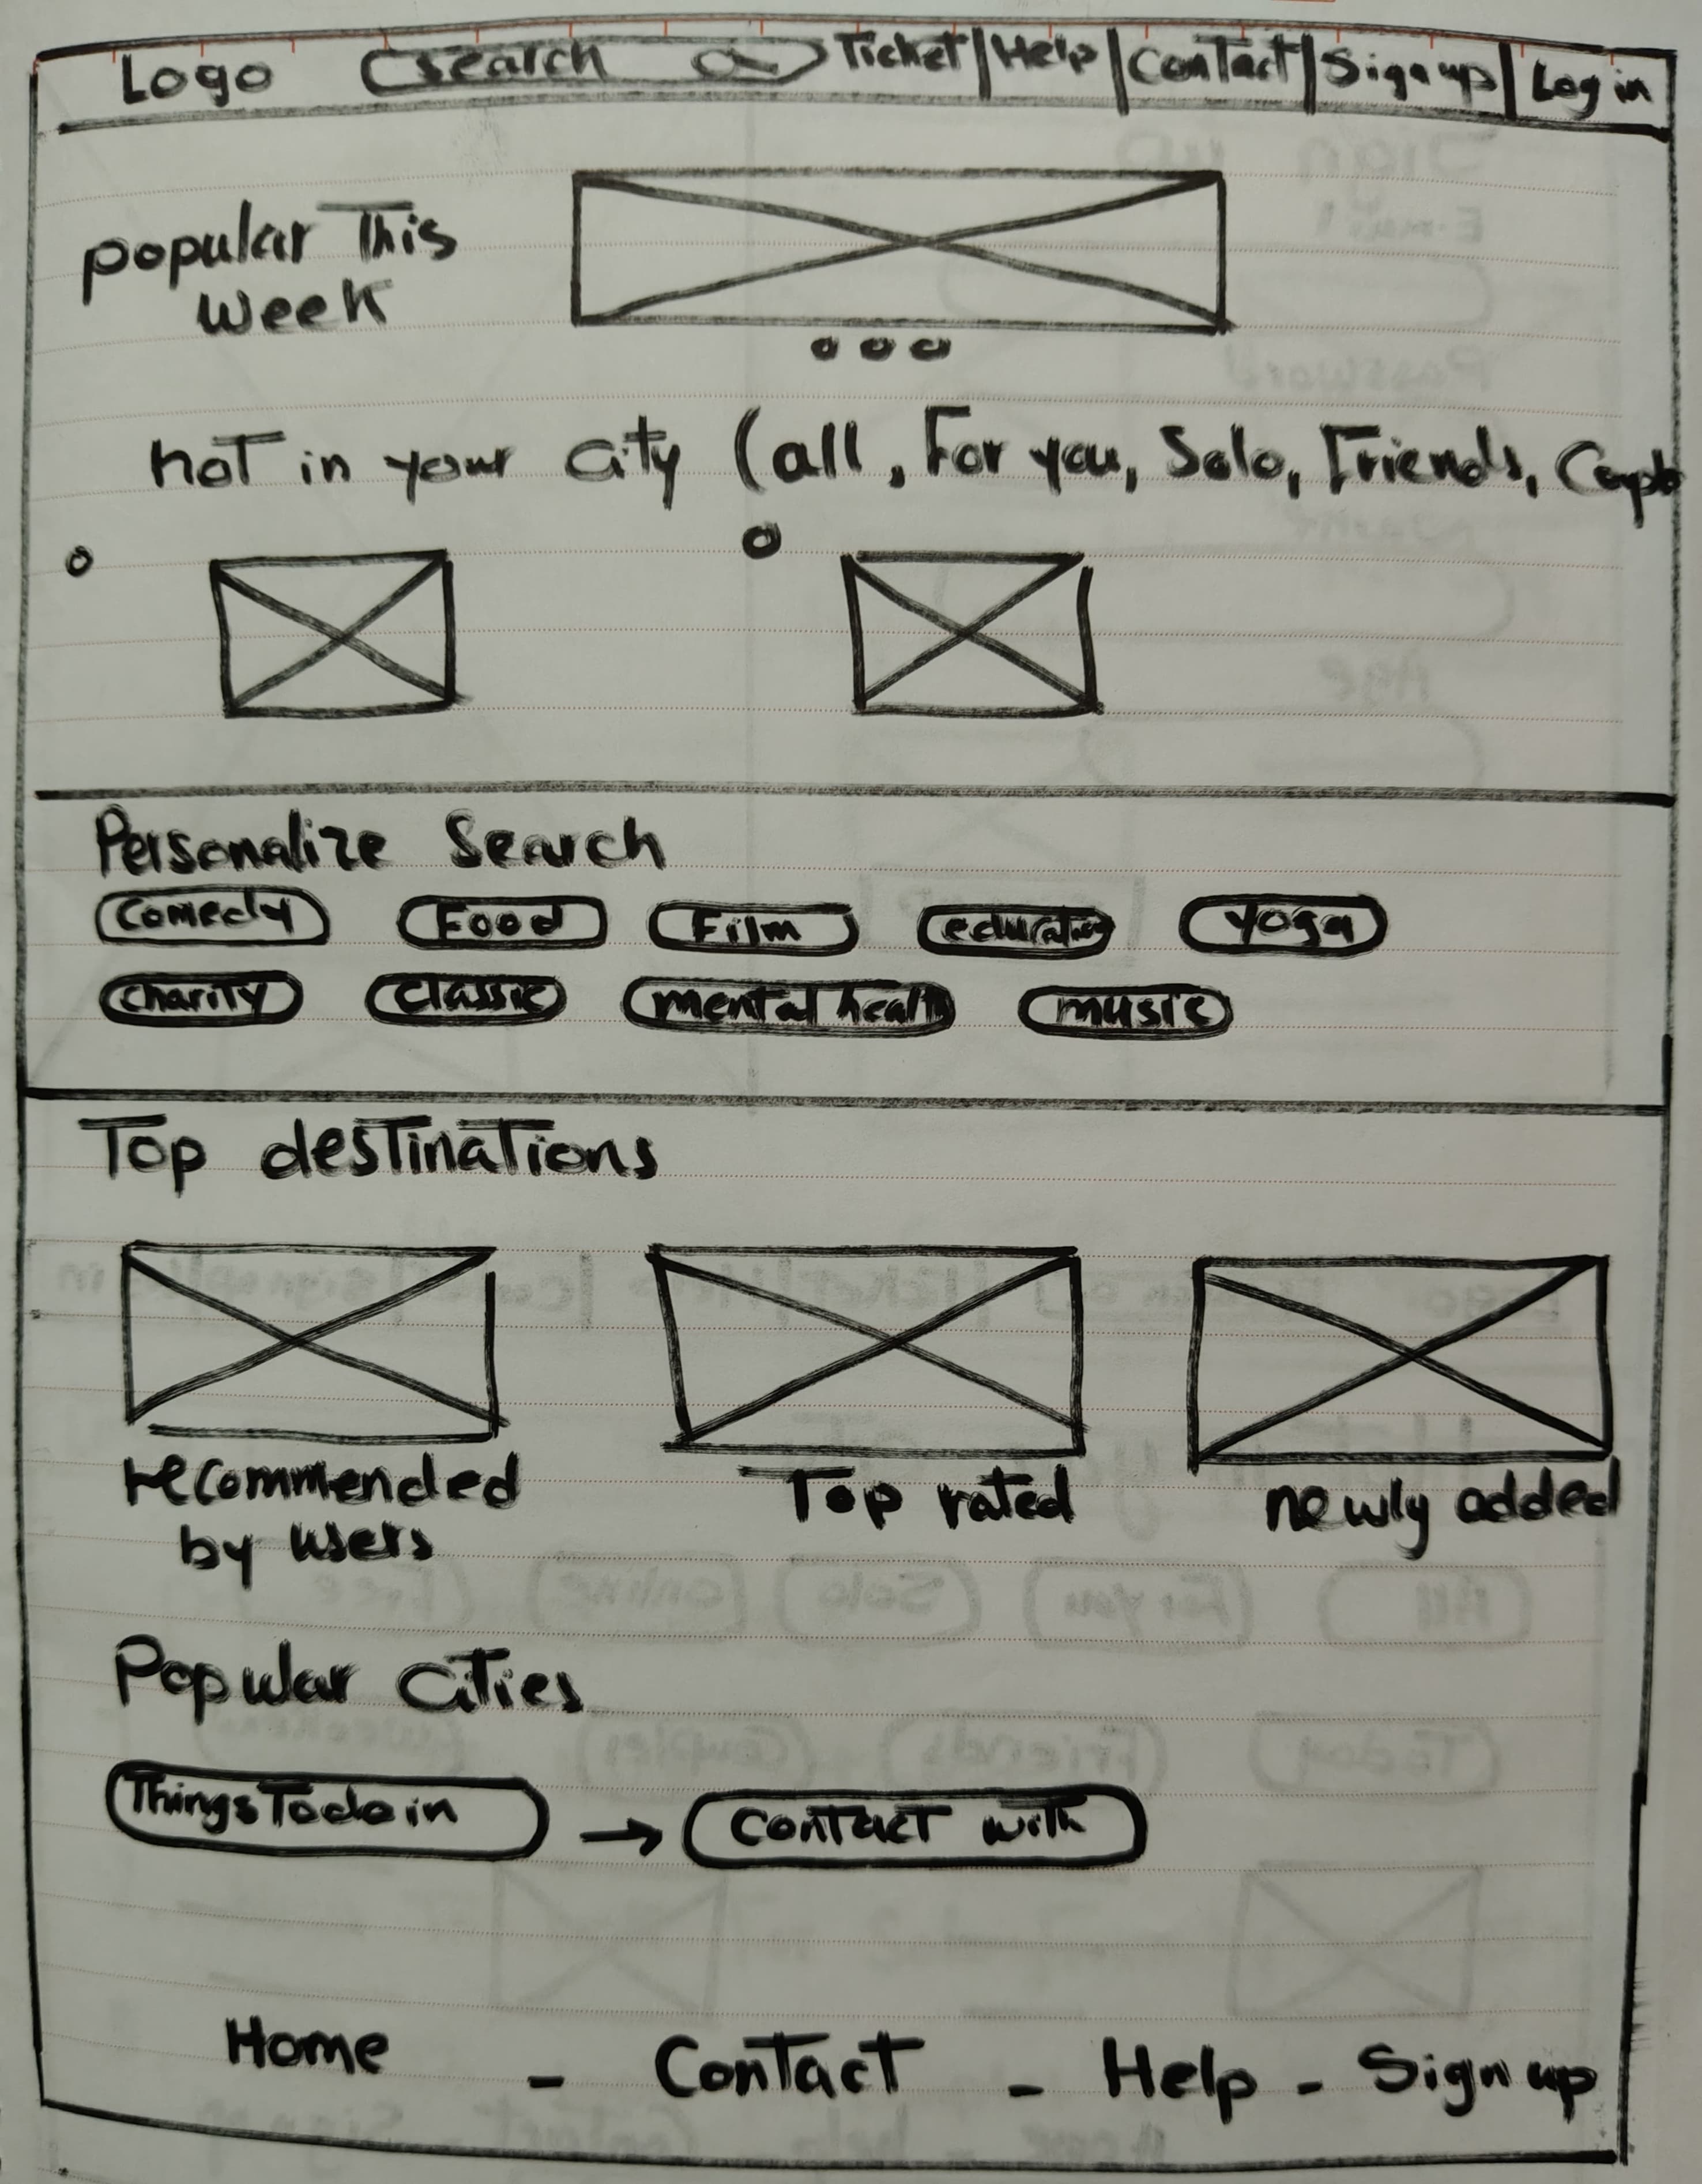 Logo search Ticket | Help | Contact | Sign up | Log in
popular This
week
hot in your city (all, For you, Solo, Friends,
Personalize Search
Comedy Food Film education yoga
charity classic mental health music
Top destinations
recommended
by users
Top rated
newly added
Popular cities
Things To do in → contact with
Home - Contact - Help - Sign up